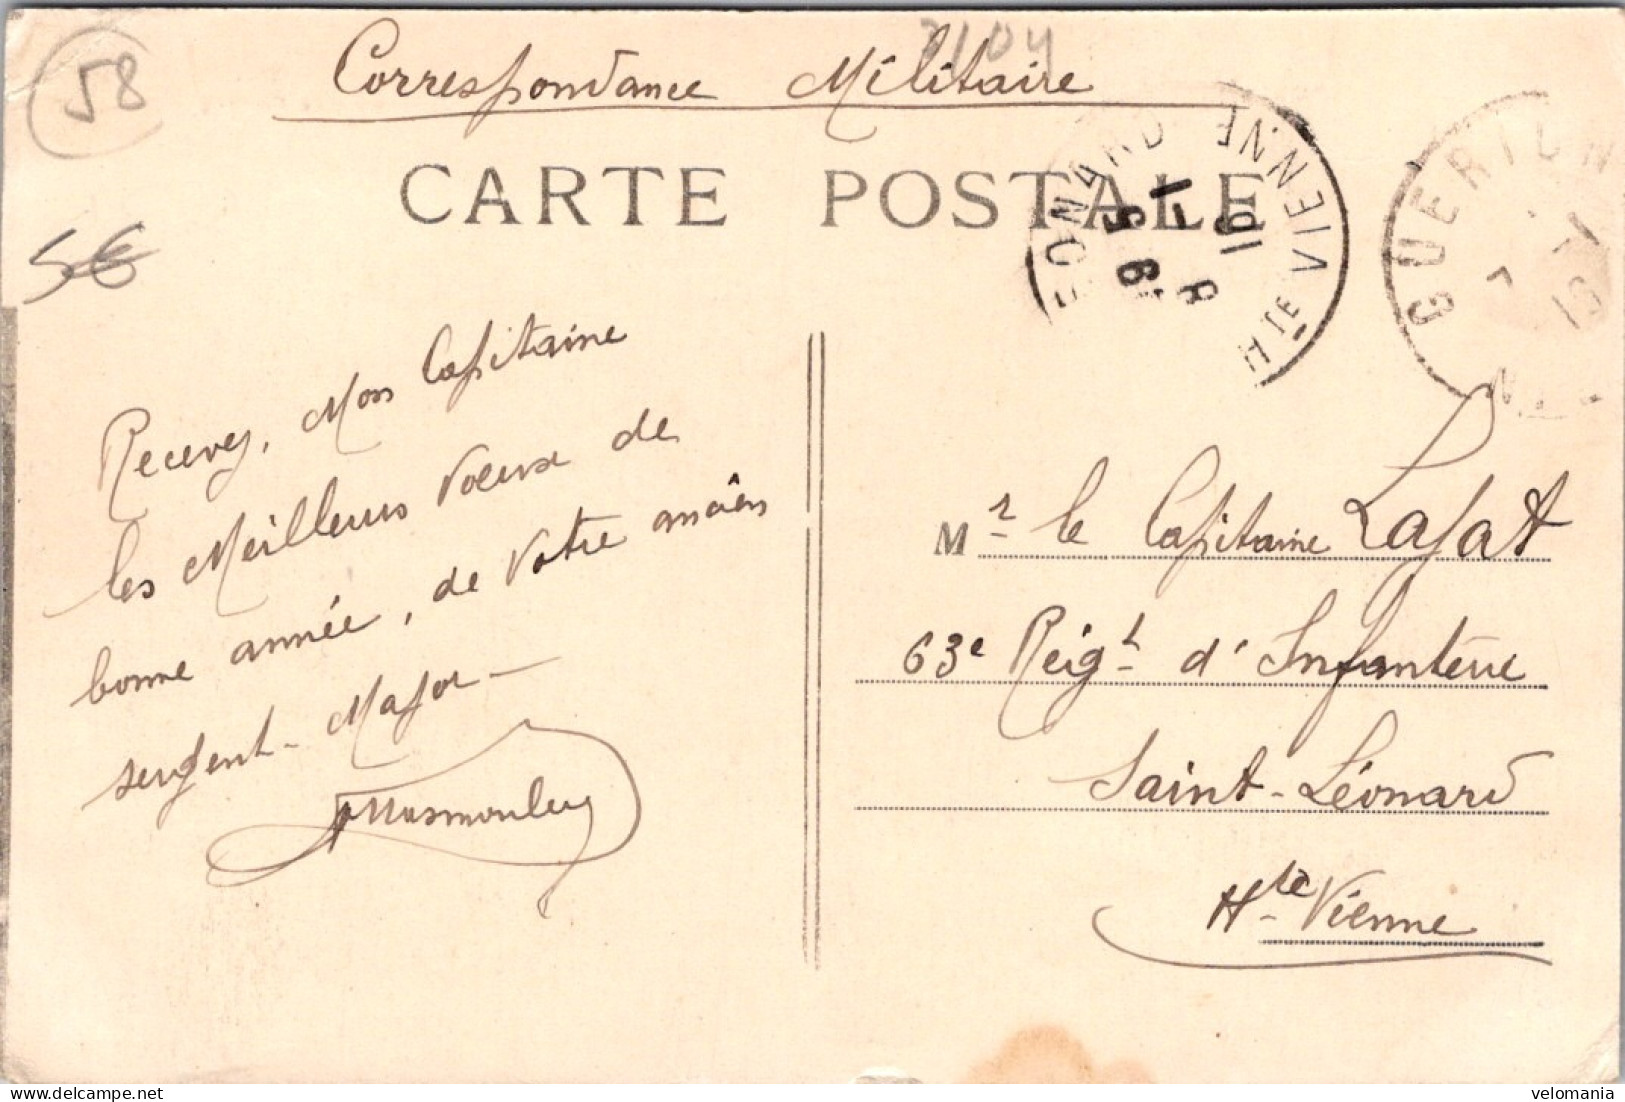 58
7104
Correspondance Militaire
CARTE POSTALE
5€
LEONARD
HTE VIENNE
GUERIGN
Recevez, Mon Capitaine
les Meilleurs Voeux de
bonne année, de Votre ancien
sergent-Major -
Mr le Capitaine Lafat
63e Régt d'Infanterie
Saint-Léonard
Hte Vienne
velomania